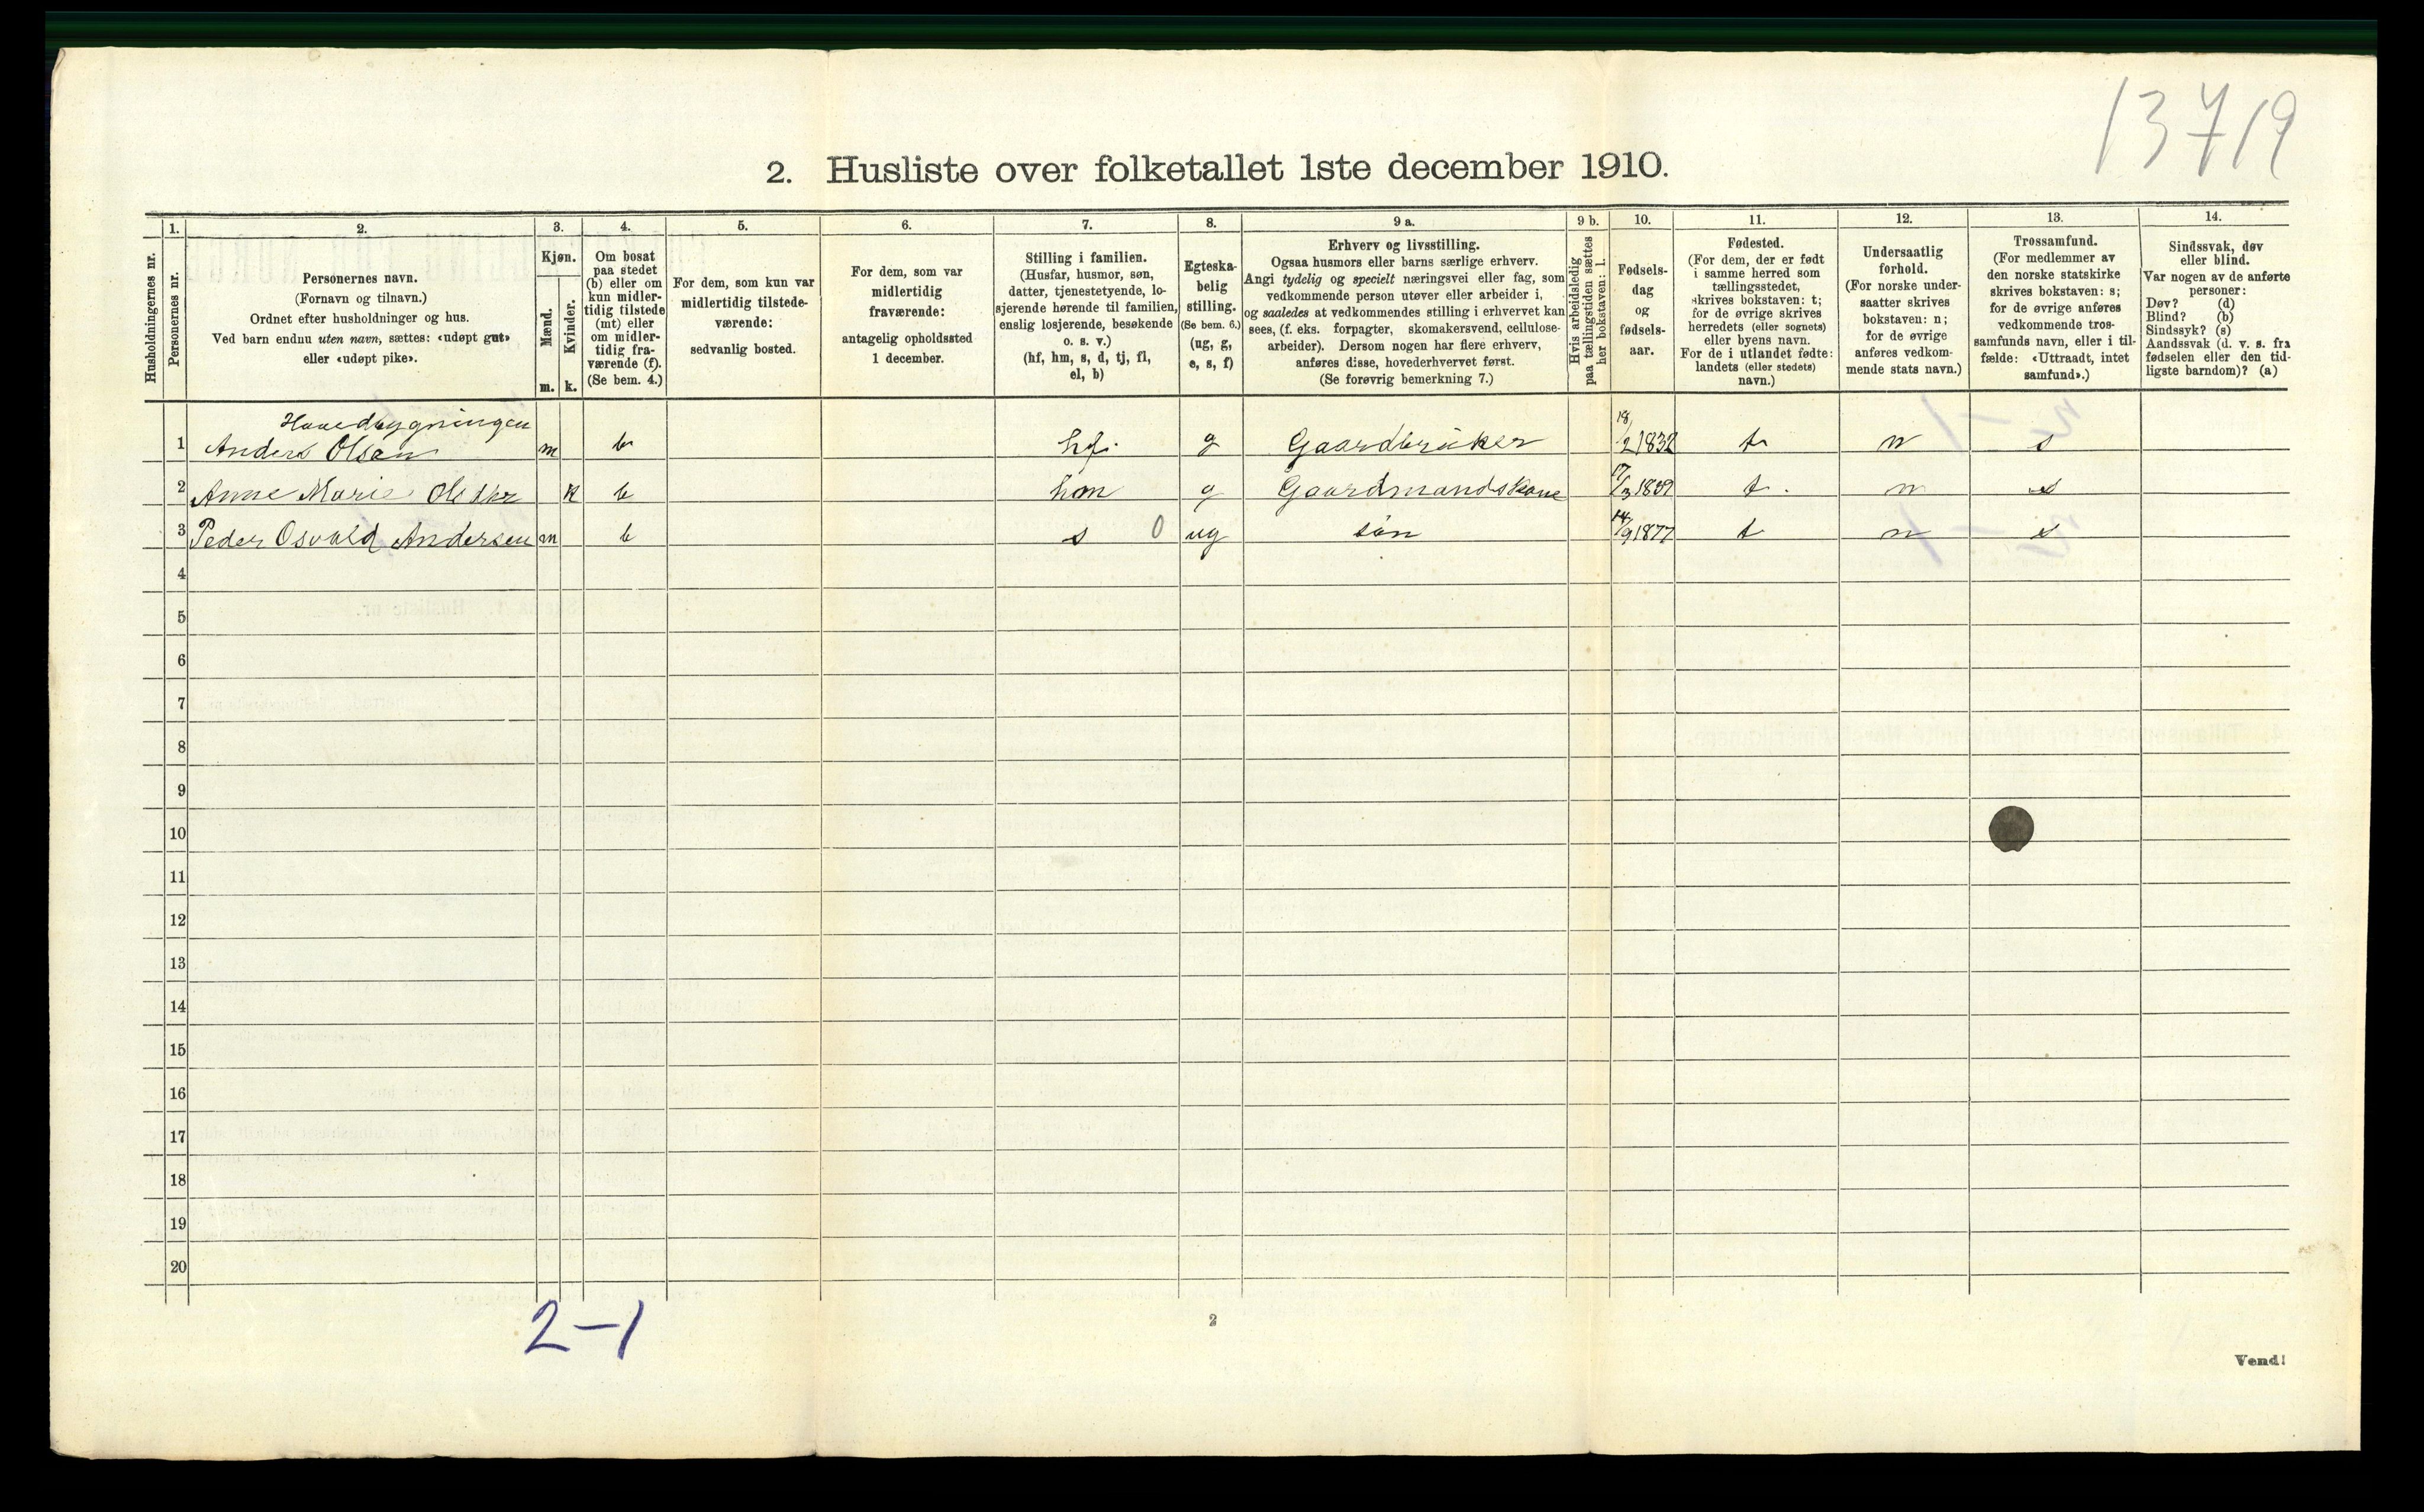 13719
2. Husliste over folketallet 1ste december 1910.
1. 2. 3. 4. 5. 6. 7. 8. 9 a. 9 b. 10. 11. 12. 13. 14.
Husholdningernes nr.
Personernes nr.
Personernes navn.
(Fornavn og tilnavn.)
Ordnet efter husholdninger og hus.
Ved barn endnu uten navn, sættes: «udøpt gut»
eller «udøpt pike».
Kjøn.
Mænd.
Kvinder.
m. k.
Om bosat
paa stedet
(b) eller om
kun midler-
tidig tilstede
(mt) eller
om midler-
tidig fra-
værende (f).
(Se bem. 4.)
For dem, som kun var
midlertidig tilstede-
værende:
sedvanlig bosted.
For dem, som var
midlertidig
fraværende:
antagelig opholdssted
1 december.
Stilling i familien.
(Husfar, husmor, søn,
datter, tjenestetyende, lo-
sjerende hørende til familien,
enslig losjerende, besøkende
o. s. v.)
(hf, hm, s, d, tj, fl,
el, b)
Egteska-
belig
stilling.
(Se bem. 6.)
(ug, g,
e, s, f)
Erhverv og livsstilling.
Ogsaa husmors eller barns særlige erhverv.
Angi tydelig og specielt næringsvei eller fag, som
vedkommende person utøver eller arbeider i,
og saaledes at vedkommendes stilling i erhvervet kan
sees, (f. eks. forpagter, skomakersvend, cellulose-
arbeider). Dersom nogen har flere erhverv,
anføres disse, hovederhvervet først.
(Se forøvrig bemerkning 7.)
Hvis arbeidsledig
paa tællingstiden sættes
her bokstaven: l.
Fødsels-
dag
og
fødsels-
aar.
Fødested.
(For dem, der er født
i samme herred som
tællingsstedet,
skrives bokstaven: t;
for de øvrige skrives
herredets (eller sognets)
eller byens navn.
For de i utlandet fødte:
landets (eller stedets)
navn.)
Undersaatlig
forhold.
(For norske under-
saatter skrives
bokstaven: n;
for de øvrige
anføres vedkom-
mende stats navn.)
Trossamfund.
(For medlemmer av
den norske statskirke
skrives bokstaven: s;
for de øvrige anføres
vedkommende tros-
samfunds navn, eller i til-
fælde: «Uttraadt, intet
samfund».)
Sindssvak, døv
eller blind.
Var nogen av de anførte
personer:
Døv? (d)
Blind? (b)
Sindssyk? (s)
Aandssvak (d. v. s. fra
fødselen eller den tid-
ligste barndom)? (a)
Hovedbygningen
1 Anders Olsen m b hf. g Gaardbruker 18/2 1832 t n s
2 Anne Marie Olsdtr k b hm g Gaardmandskone 17/3 1839 t. n s
3 Peder Osvald Andersen m b s 0 ug sön 14/9 1877 t n s
4
5
6
7
8
9
10
11
12
13
14
15
16
17
18
19
20
2-1
2
Vend!